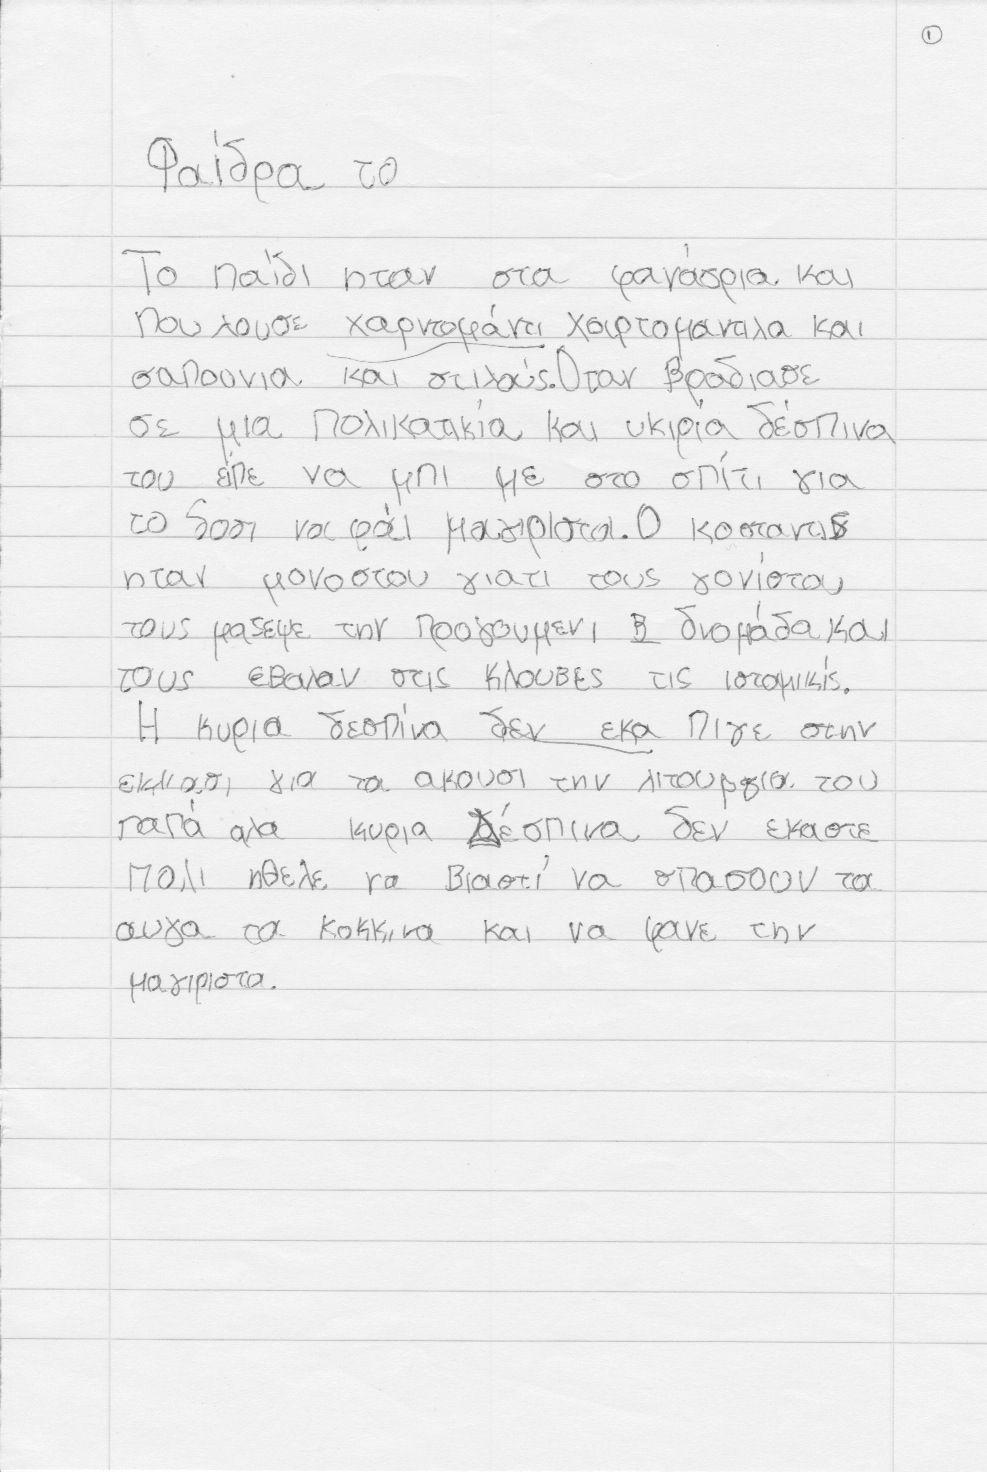 1
Φαίδρα το
Το παίδι ηταν στα φανάσρια και
που λουσε χαρντομάντι χαρτομαντιλα και
σαπουνια και στιλούς. Οταν βραδιασε
σε μια πολικατικία και υκιρία δέσπινα
του είπε να μπι με στο σπίτι για
το δοσι να φάι μαγιριστα. Ο κοσταντις
ηταν μονοστου γιατι τους γονίστου
τους μαζεψε την προγουμενι β διομάδα και
τους εβαλαν στις κλουβες τις ιστομικίς.
Η κυρια δεσπίνα δεν εκα πιγε στην
εκκλασι για τα ακουσι την λιτουργια του
παπά αλα κυρια Δέσπινα δεν εκαστε
πολι ηθελε να βιαστί να σπασουν τα
αυγα τα κοκκινα και να φανε την
μαγιριστα.